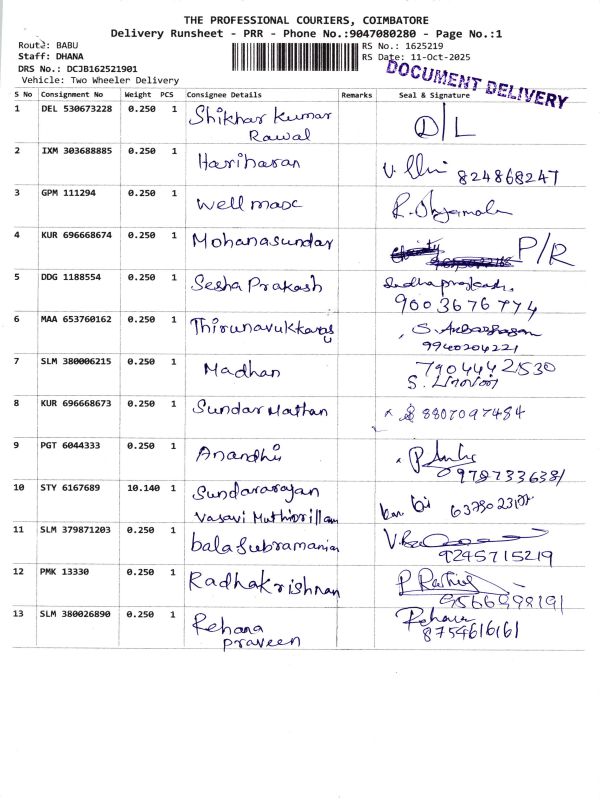 THE PROFESSIONAL COURIERS, COIMBATORE
Delivery Runsheet - PRR - Phone No.:9047080280 - Page No.:1
Route: BABU
RS No.: 1625219
Staff: DHANA
RS Date: 11-Oct-2025
DRS No.: DCJB162521901
DOCUMENT DELIVERY
Vehicle: Two Wheeler Delivery
S No Consignment No Weight PCS Consignee Details Remarks Seal & Signature
1 DEL 530673228 0.250 1 Shikhar Kumar
Rawal
D/L
2 IXM 303688885 0.250 1 Hariharan
824868247
3 GPM 111294 0.250 1 Wellmax
4 KUR 696668674 0.250 1 Mohanasundar P/R
5 DDG 1188554 0.250 1 Sesha Prakash
9003676774
6 MAA 653760162 0.250 1 Thirunavukkarasu
9940204221
7 SLM 380006215 0.250 1 Madhan 7904442530
8 KUR 696668673 0.250 1 Sundar Mathan 8807097484
9 PGT 6044333 0.250 1 Anandhi
10 STY 6167689 10.140 1 Sundararajan
Vasavi
11 SLM 379871203 0.250 1 balaSubramanian
9245715219
12 PMK 13330 0.250 1 Radhakrishnan
13 SLM 380026890 0.250 1 Rehana
praveen
Rehana
8754616161